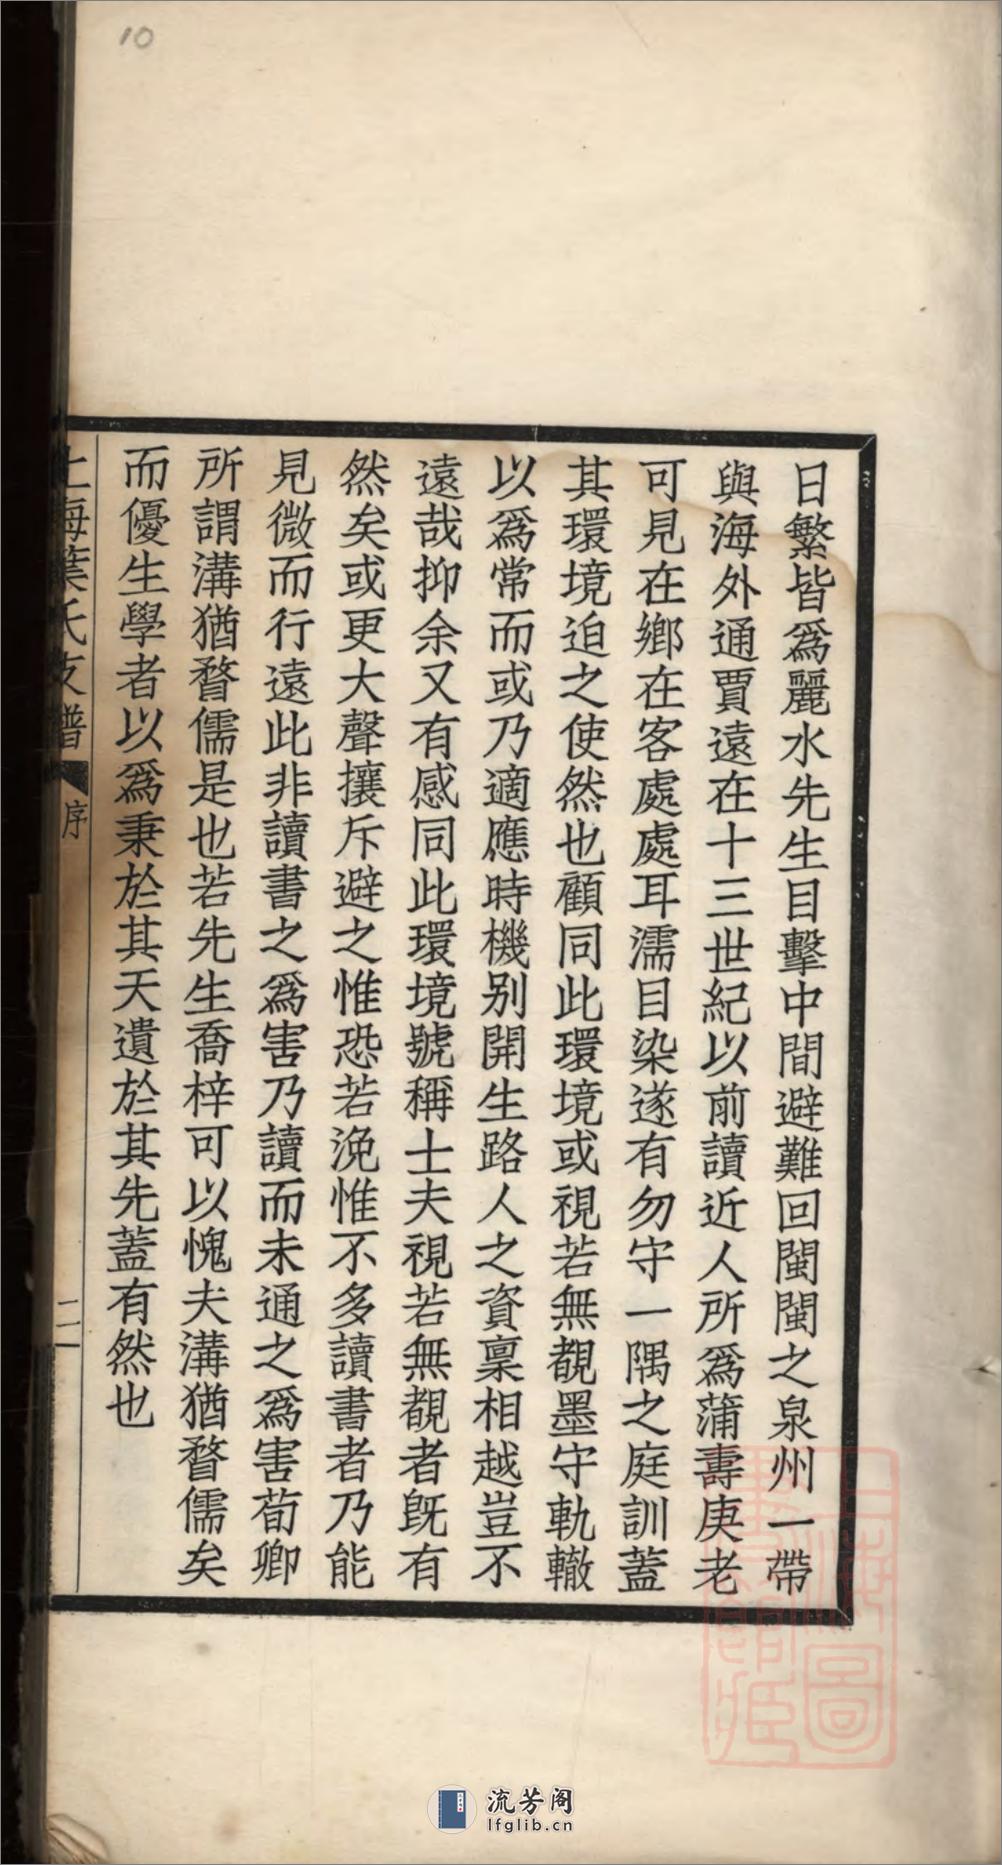 10
日繁皆爲麗水先生目擊中間避難回閩閩之泉州一帶
與海外通賈遠在十三世紀以前讀近人所爲蒲壽庚老
可見在鄉在客處處耳濡目染遂有勿守一隅之庭訓蓋
其環境迫之使然也顧同此環境或視若無覩墨守軌轍
以爲常而或乃適應時機别開生路人之資稟相越豈不
遠哉抑余又有感同此環境號稱士夫視若無覩者旣有
然矣或更大聲攘斥避之惟恐若浼惟不多讀書者乃能
見微而行遠此非讀書之爲害乃讀而未通之爲害荀卿
所謂溝猶瞀儒是也若先生喬梓可以愧夫溝猶瞀儒矣
而優生學者以爲秉於其天遺於其先蓋有然也
上海葉氏支譜
序
二
上海圖書館藏
流芳阁
lfglib.cn